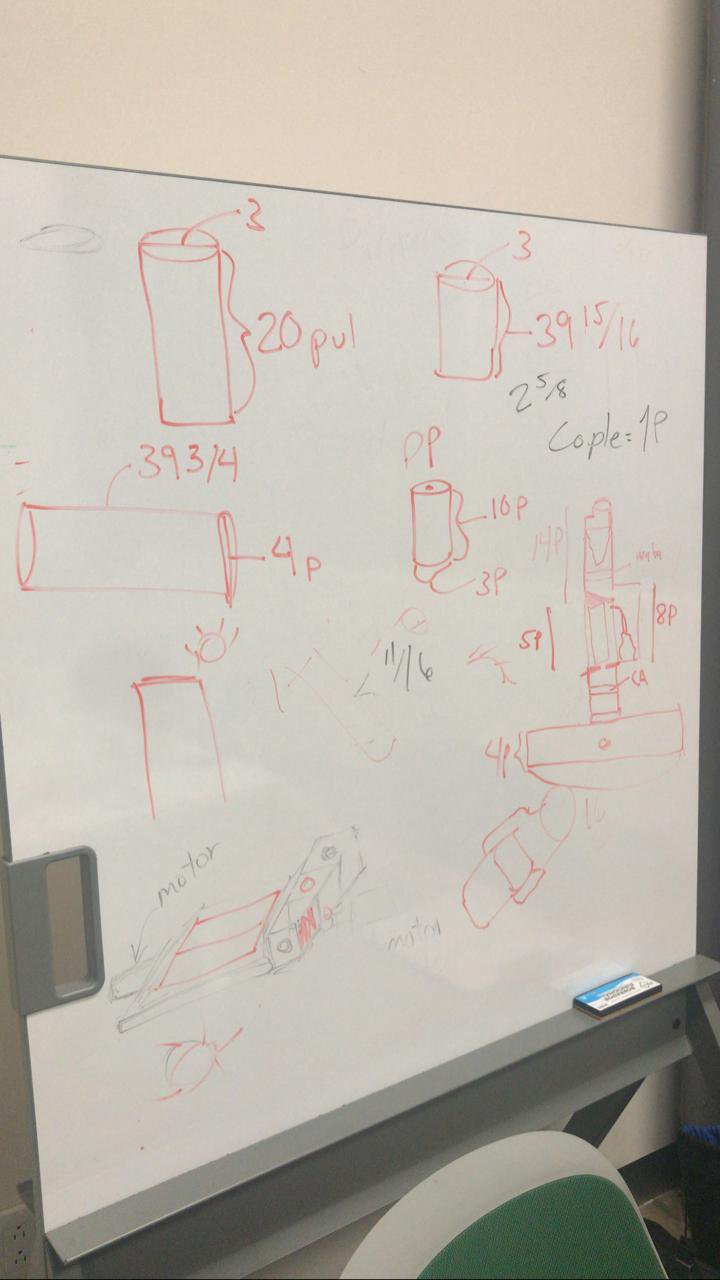 3
20 pul
3
39 15/16
2 5/8
Cople = 1P
39 3/4
4p
PP
10P
3P
14P
8P
5P
CA
4P
11/16
16
motor
motor